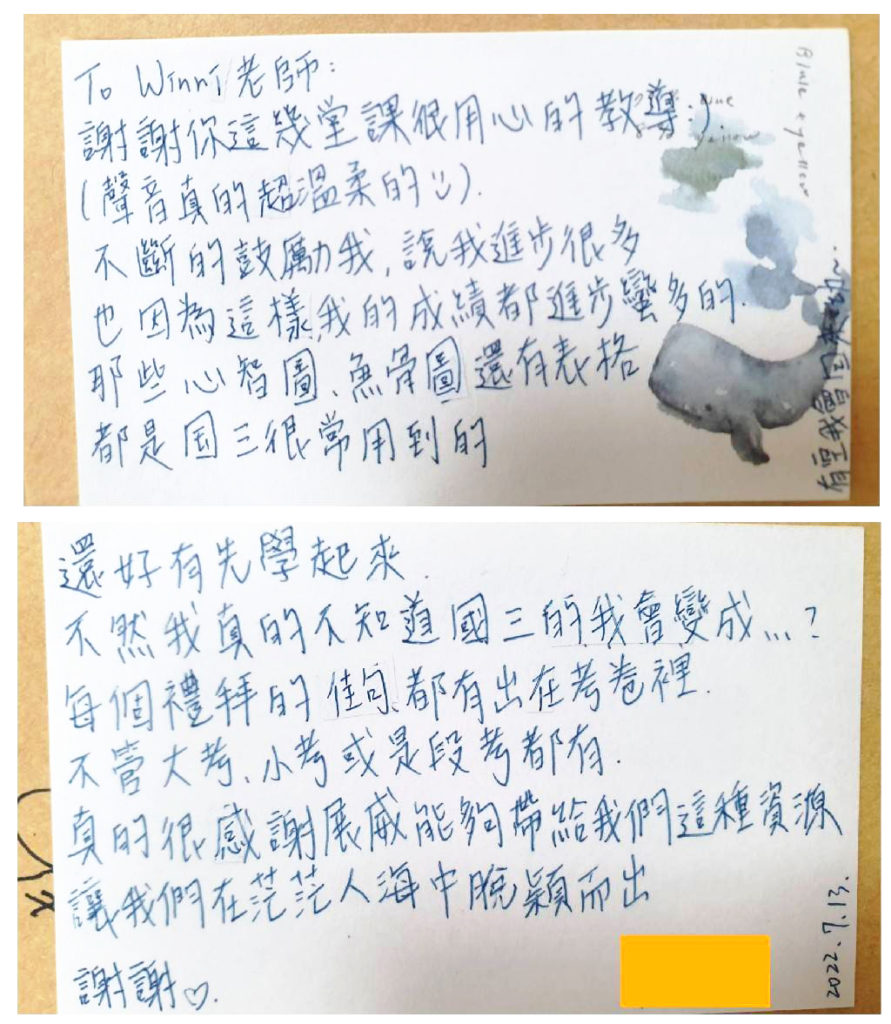 To Winni 老師:
謝謝你這幾堂課很用心的教導.
(聲音真的超溫柔的).
不斷的鼓勵我,說我進步很多
也因為這樣,我的成績都進步蠻多的.
那些心智圖、魚骨圖還有表格
都是国三很常用到的
有空我會回來
Blue + yellow
還好有先學起來.
不然我真的不知道國三的我會變成...?
每個禮拜的佳句,都有出在考卷裡.
不管大考、小考或是段考都有.
真的很感謝展威能夠帶給我們這種資源
讓我們在茫茫人海中脫穎而出
謝謝♡.
2022.7.13.